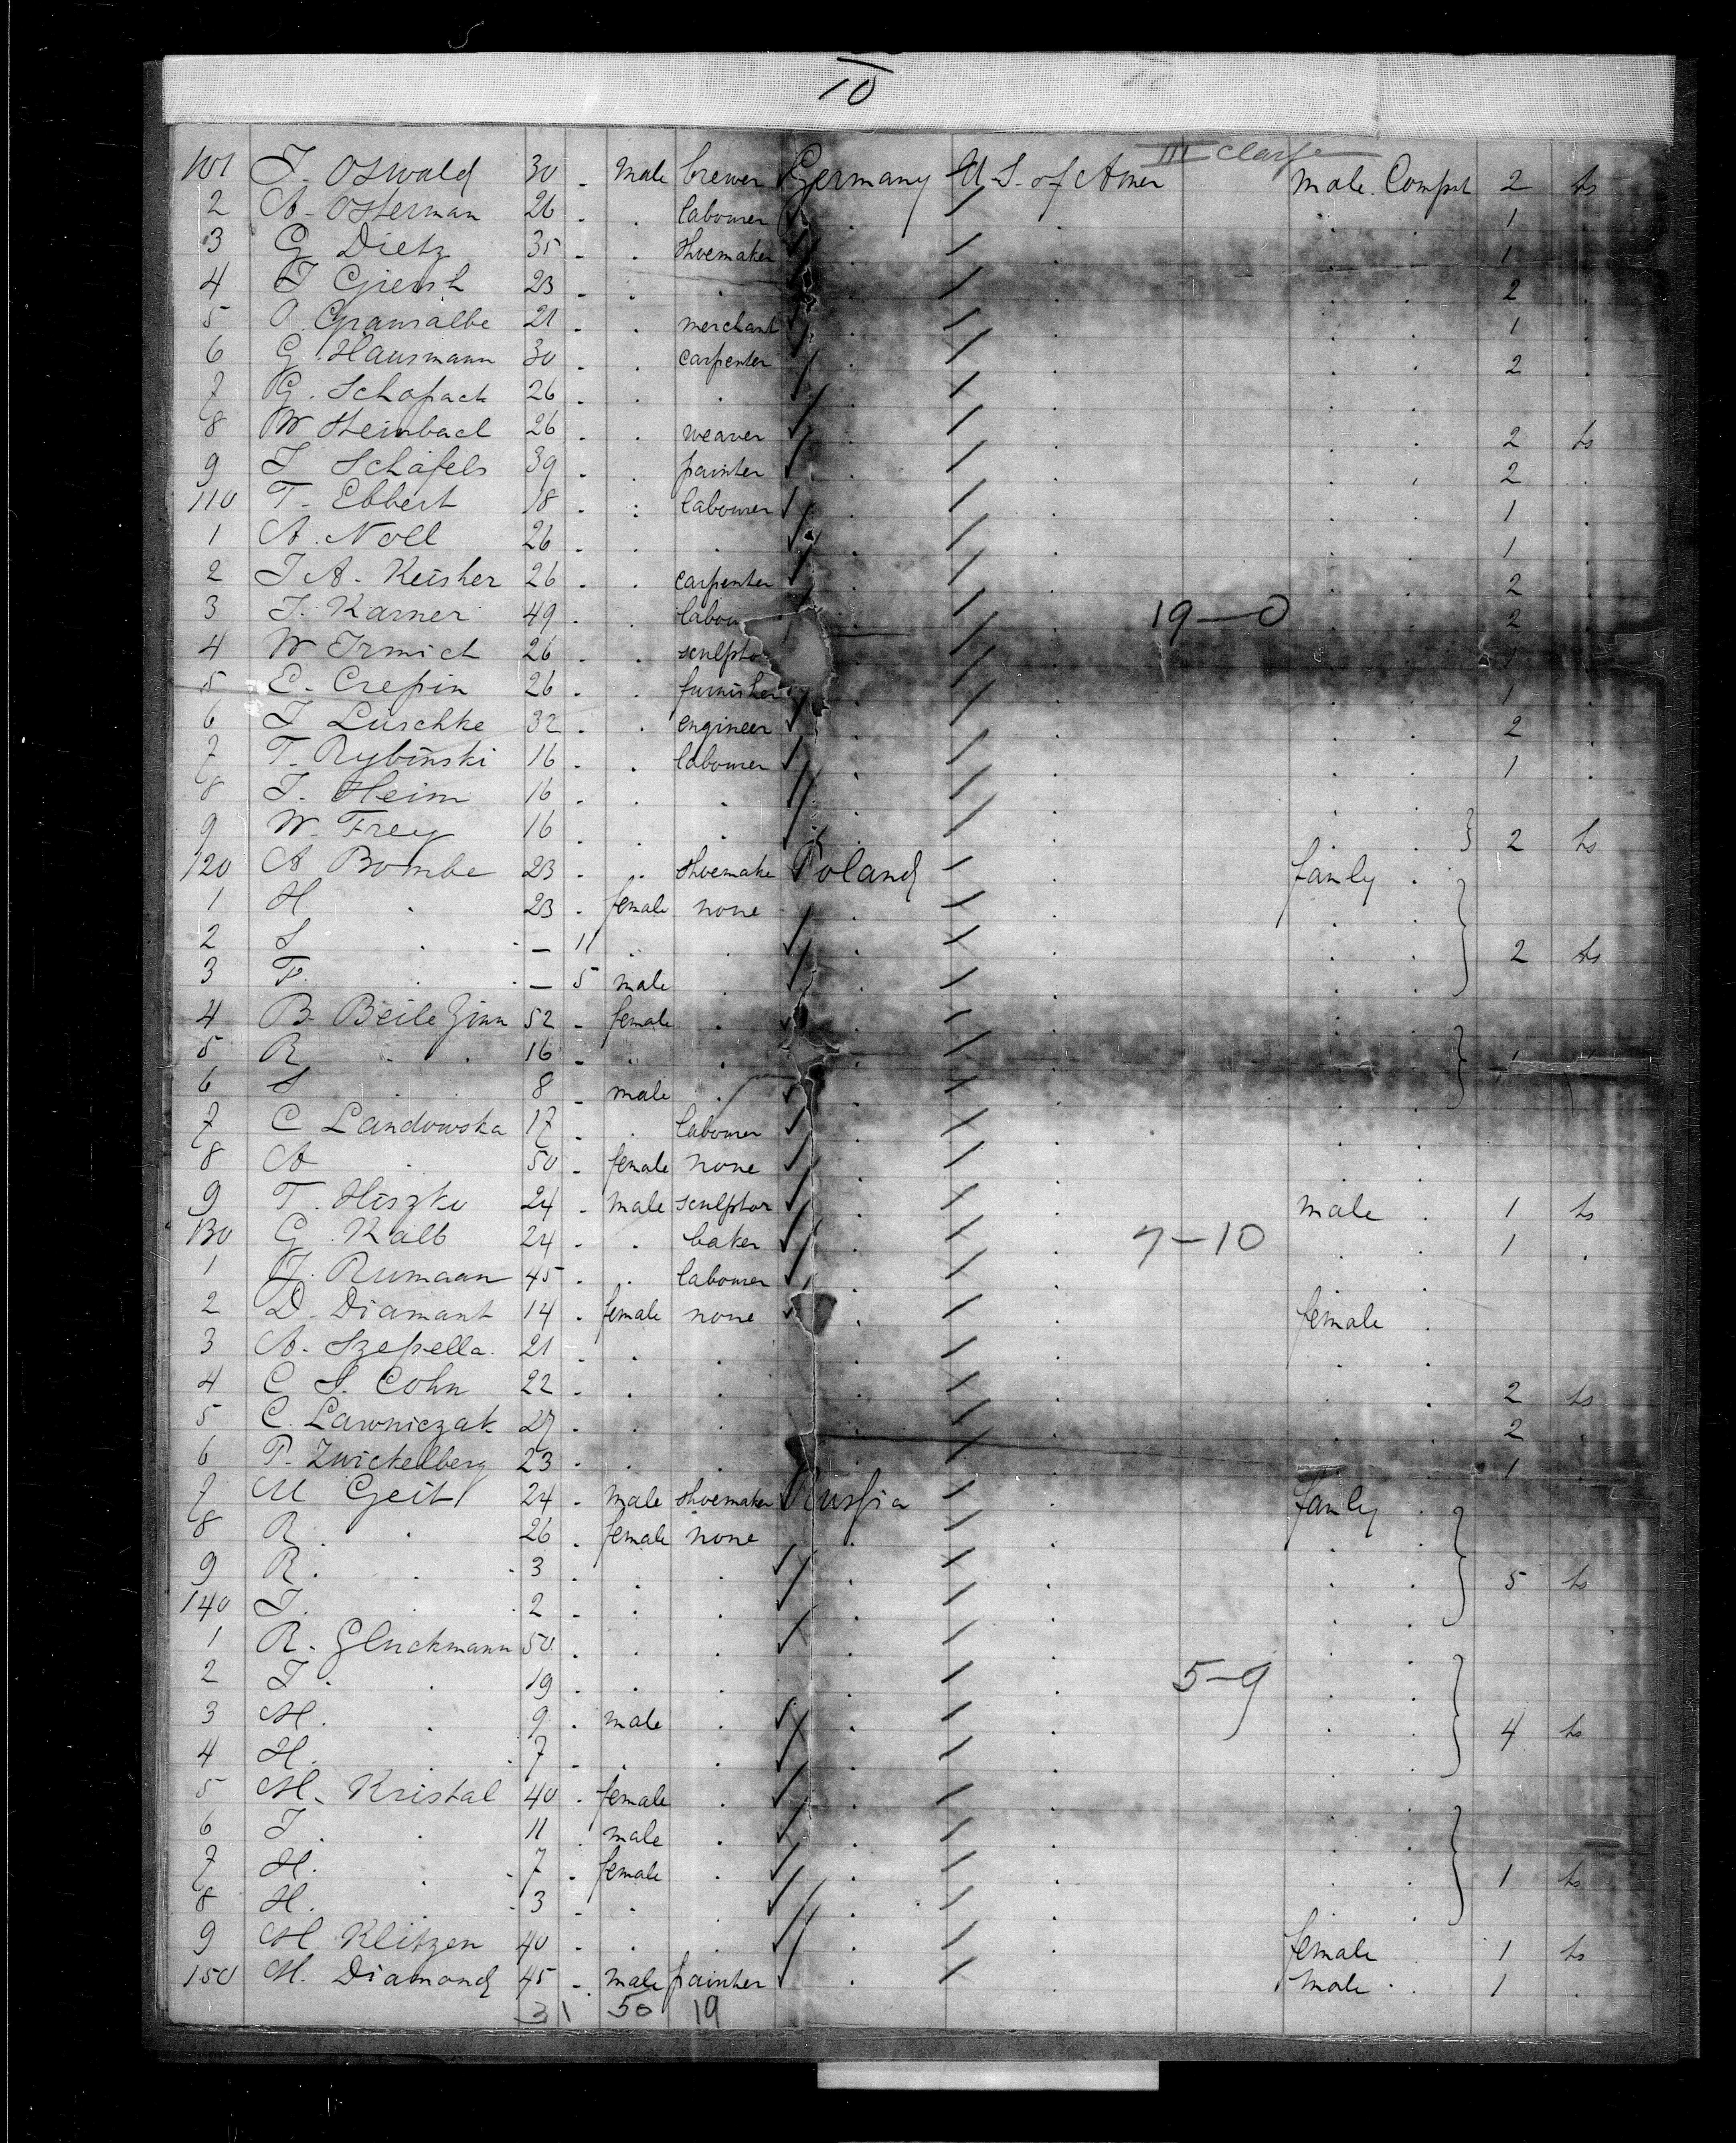 10
III classe
101 J. Oswald 30 . Male brewer Germany U.S. of Amer male Compt 2 ts
2 A. Osterman 26 . . labourer . . . . 1 .
3 G Dietz 35 . . shoemaker . . . . 1
4 J Giersh 23 . . . . . . . 2 .
5 O. Gransalbe 21 . . merchant . . . . 1 .
6 G. Hausmann 30 . carpenter . . . . 2 .
7 G. Schopack 26 . . . . . . .
8 W Steinbach 26 . . weaver . . . . 2 ts
9 J Schäfels 39 . . painter . . . . 2 .
110 T. Ebbert 18 . . labourer . . . . 1 .
1 A. Noll 26 . . . . . . . 1 .
2 J A. Keisher 26 . . carpenter . . . . 2 .
3 J. Karner 49 . . labou . . 19-0 . . 2 .
4 W Irmich 26 . . sculpto . . . . 1
5 E. Crepin 26 . . furnisher . . . . 1 .
6 J Luschke 32 . . engineer . . . . 2 .
7 T. Rybinski 16 . . labourer . . . . 1 .
8 J. Heim 16 . . . . . . .
9 W. Frey 16 . . . . . . . } 2 ts
120 A Bombe 23 . . shoemake Poland . family .
1 H . 23 . female none . . . .
2 S . . - 11 . . . . . . 2 ts
3 F. . . - 5 male . . . . .
4 B Beile Zinn 52 . female . . . . .
5 R . . 16 . . . . . . .
6 S . 8 . male . . . . .
7 C Landowska 17 . . labourer . . . .
8 A . 50 . female none . . . .
9 T. Hiszko 24 . male sculptor . . male . 1 ts
130 G. Kalb 24 . . baker . . 7-10 . . 1 .
1 J. Rumaan 45 . . labourer . . . .
2 D. Diamant 14 . female none . . female .
3 A. Szepella. 21 . . . . . . .
4 C S. Cohn 22 . . . . . . . 2 ts
5 C. Lawniczak 27 . . . . . . . 2 .
6 P. Zwickelberg 23 . . . . . . . 1 .
7 M Geit 24 . male shoemaker Russia . family .
8 R. . 26 . female none . . . .
9 R. . . 3 . . . . . . . 5 ts
140 J. . . 2 . . . . . . .
1 R. Gluckmann 50 . . . . . . .
2 J. . 19 . . . . . 5-9 . .
3 M. . 9 . male . . . . . 4 ts
4 H. . 7 . . . . . . .
5 M. Kristal 40 . female . . . . .
6 J. . 11 . male . . . . .
7 H. . . 7 . female . . . . . 1 ts
8 H. . 3 . . . . . . .
9 M Klitzen 40 . . . . . female . 1 ts
150 M. Diamond 45 . male painter . . male . 1 .
31 50 19